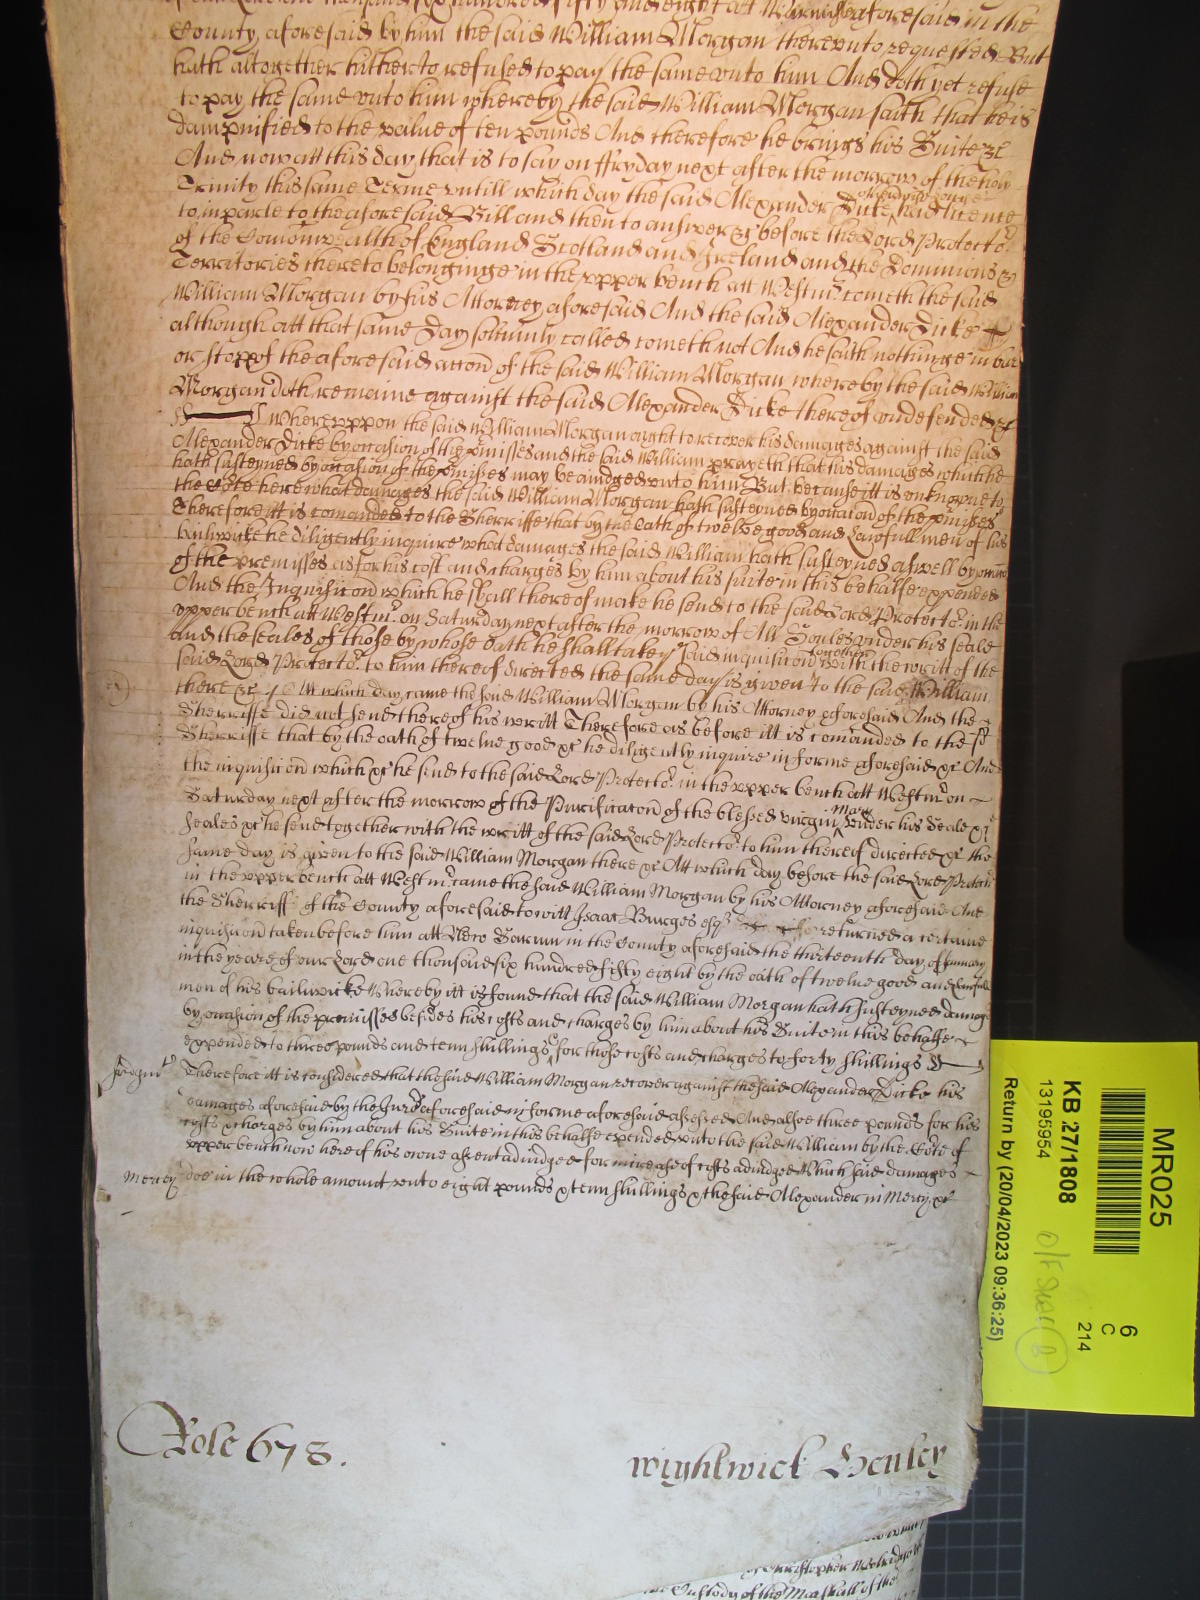 thousand six hundred fifty and eight att Warmister aforesaid in the
County aforesaid by him the said William Morgan therevnto requested But
hath altogether hitherto refused to pay the same vnto him And doth yet refuse
to pay the same vnto him whereby the said William Morgan saith that he is
dampnified to the value of ten pounds And therefore he brings his Suite &c
And now att this day that is to say on ffryday next after the morrow of the holy
Trinity this same Terme vntill which day the said Alexander Dicke had licence
otherwise
to imparle to the aforesaid Bill and then to answer &c before the Lord Protector
of the Comonwealth of England Scotland and Ireland and the Dominions &
Territories thereto belonginge in the vpper bench att Westmr. cometh the said
William Morgan by his Attorney aforesaid And the said Alexander Dicke
although att that same day solemnly called cometh not And he saith nothinge in barr
or stopp of the aforesaid accon of the said William Morgan whereby the said William
Morgan doth remaine against the said Alexander Dicke thereof vndefended &c
Wherevppon the said William Morgan ought to recover his damages against the said
Alexander Dicke by occasion of the p'misses and the said William prayeth that his damages which he
hath susteyned by occasion of the p'misses may be aiudged vnto him But because itt is vnknowne to
the Cort here what damages the said William Morgan hath susteyned by occasion of the p'misses
Therefore itt is comanded to the Sherriffe that by the Oath of twelve good and Lawfull men of his
bailiwicke he diligently inquire what damages the said William hath susteyned aswell by occasion
of the premisses as for his cost and charges by him about his suite in this behalfe expended
And the Inquisicon which he shall thereof make he send to the said Lord Protector. in the
vpper bench att Westmr. on Saturday next after the morrow of All Soules vnder his seale
and the seales of those by whose Oath he shall take ye said inquisicon with the writt of the
together
said Lord Protector. to him thereof directed the same day is given to the said William
there &c Att which day came the said William Morgan by his Attorney aforesaid And the
Sherriffe did not send thereof his writt Therefore as before itt is comanded to the
Sherriffe that by the oath of twelve good &c he diligently inquire in forme aforesaid &c And
the inquisicon which &c he send to the said Lord Protector. in the vpper bench att Westmr. on
Saturday next after the morrow of the Purificacon of the blessed virgin Mary vnder his Seale &c
seales &c he send together with the writt of the said Lord Protector. to him thereof directed &c the
same day is given to the said William Morgan there &c Att which day before the said Lord Protector
in the vpper bench att Westmr. came the said William Morgan by his Attorney aforesaid And
the Sherriff of the County aforesaid to witt Isaac Burges esqr returned a certaine
inquisicon taken before him att New Sarum in the County aforesaid the thirteenth day of January
in the yeare of our Lord one thousand six hundred fifty eight by the oath of twelve good and Lawfull
men of his bailiwicke Whereby itt is found that the said William Morgan hath susteyned damage
by occasion of the premisses besides his costs and charges by him about his Suite in this behalfe
expended to three pounds and tenn shillings & for those costs and charges to forty shillings
Judgmt Therefore itt is considered that the said William Morgan recover against the said Alexander Dicke his
damages aforesaid by the Jurors aforesaid in forme aforesaid assessed And alsoe three pounds for his
costs & charges by him about his Suite in this behalfe expended vnto the said William by the Cort of
vpper bench now here of his owne assent adiudged for increase of costs adiudged Which said damages
Mercy doe in the whole amount vnto eight pounds & tenn shillings & the said Alexander in Mercy &c
Role 678.
wightwick Henley
of the
Custody of the Marshall of the
MR025
6
C
214
KB 27/1808
13195954
Return by (20/04/2023 09:36:25)